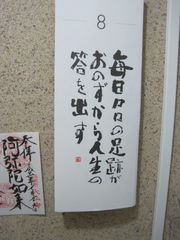 8
毎日毎日の足跡が
おのずから人生の
答を出す
奉拝
阿弥陀如来